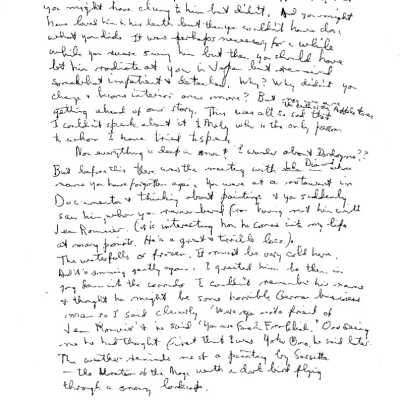 you might have clung to him but didn't. And you might
have loved him to his death but then you couldn't have done
what you did. It was perhaps necessary for a while
while you were seeing him but then you should have
let him radiate at you in but remained
somewhat impatient & detached. Why? Why didn't you
change & become interior once more? But
getting ahead of our story. This was all so sad that
I couldn't speak about it & is the only person
to whom I have tried to speak.
Now everything is deep in snow & I wonder about ??
But before this there was the meeting with whose
name you have forgotten again. You were at a restaurant in
Documenta & thinking about paintings & you suddenly
saw him, whom you remembered from having met him with
Jean . (It is interesting how he comes into my life
at many points. He is a great & terrible loss).
The waterfalls are frozen. It must be very cold here.
And it's snowing gently again. I greeted him he then in
going down into the corridor I couldn't remember his name
& thought he might be some horrible German business
man so I said clearly "
Jean & he said "You are ." On seeing
me he had thought first that I was Yoko Ono, he said later.
The weather reminds me of a painting by Sassetta
— the of the Magi with a dark bird flying
through a snowy landscape.